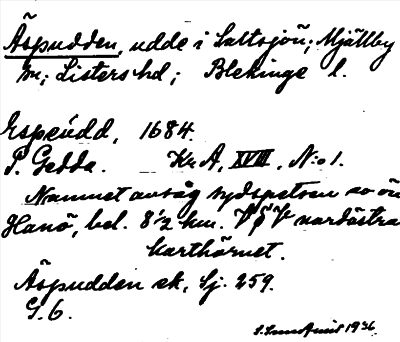 Äspudden, udde i Saltsjön; Mjällby
sn; Listers hd; Blekinge l.
Espeudd, 1684.
P. Gedda. Kr A, XVIII, N:o 1.
Namnet avsåg sydspetsen av ön
Hanö, bel. 8 1/2 km. V§V nordöstra
karthörnet.
Äspudden ek, Sj. 259.
G.6.
1936